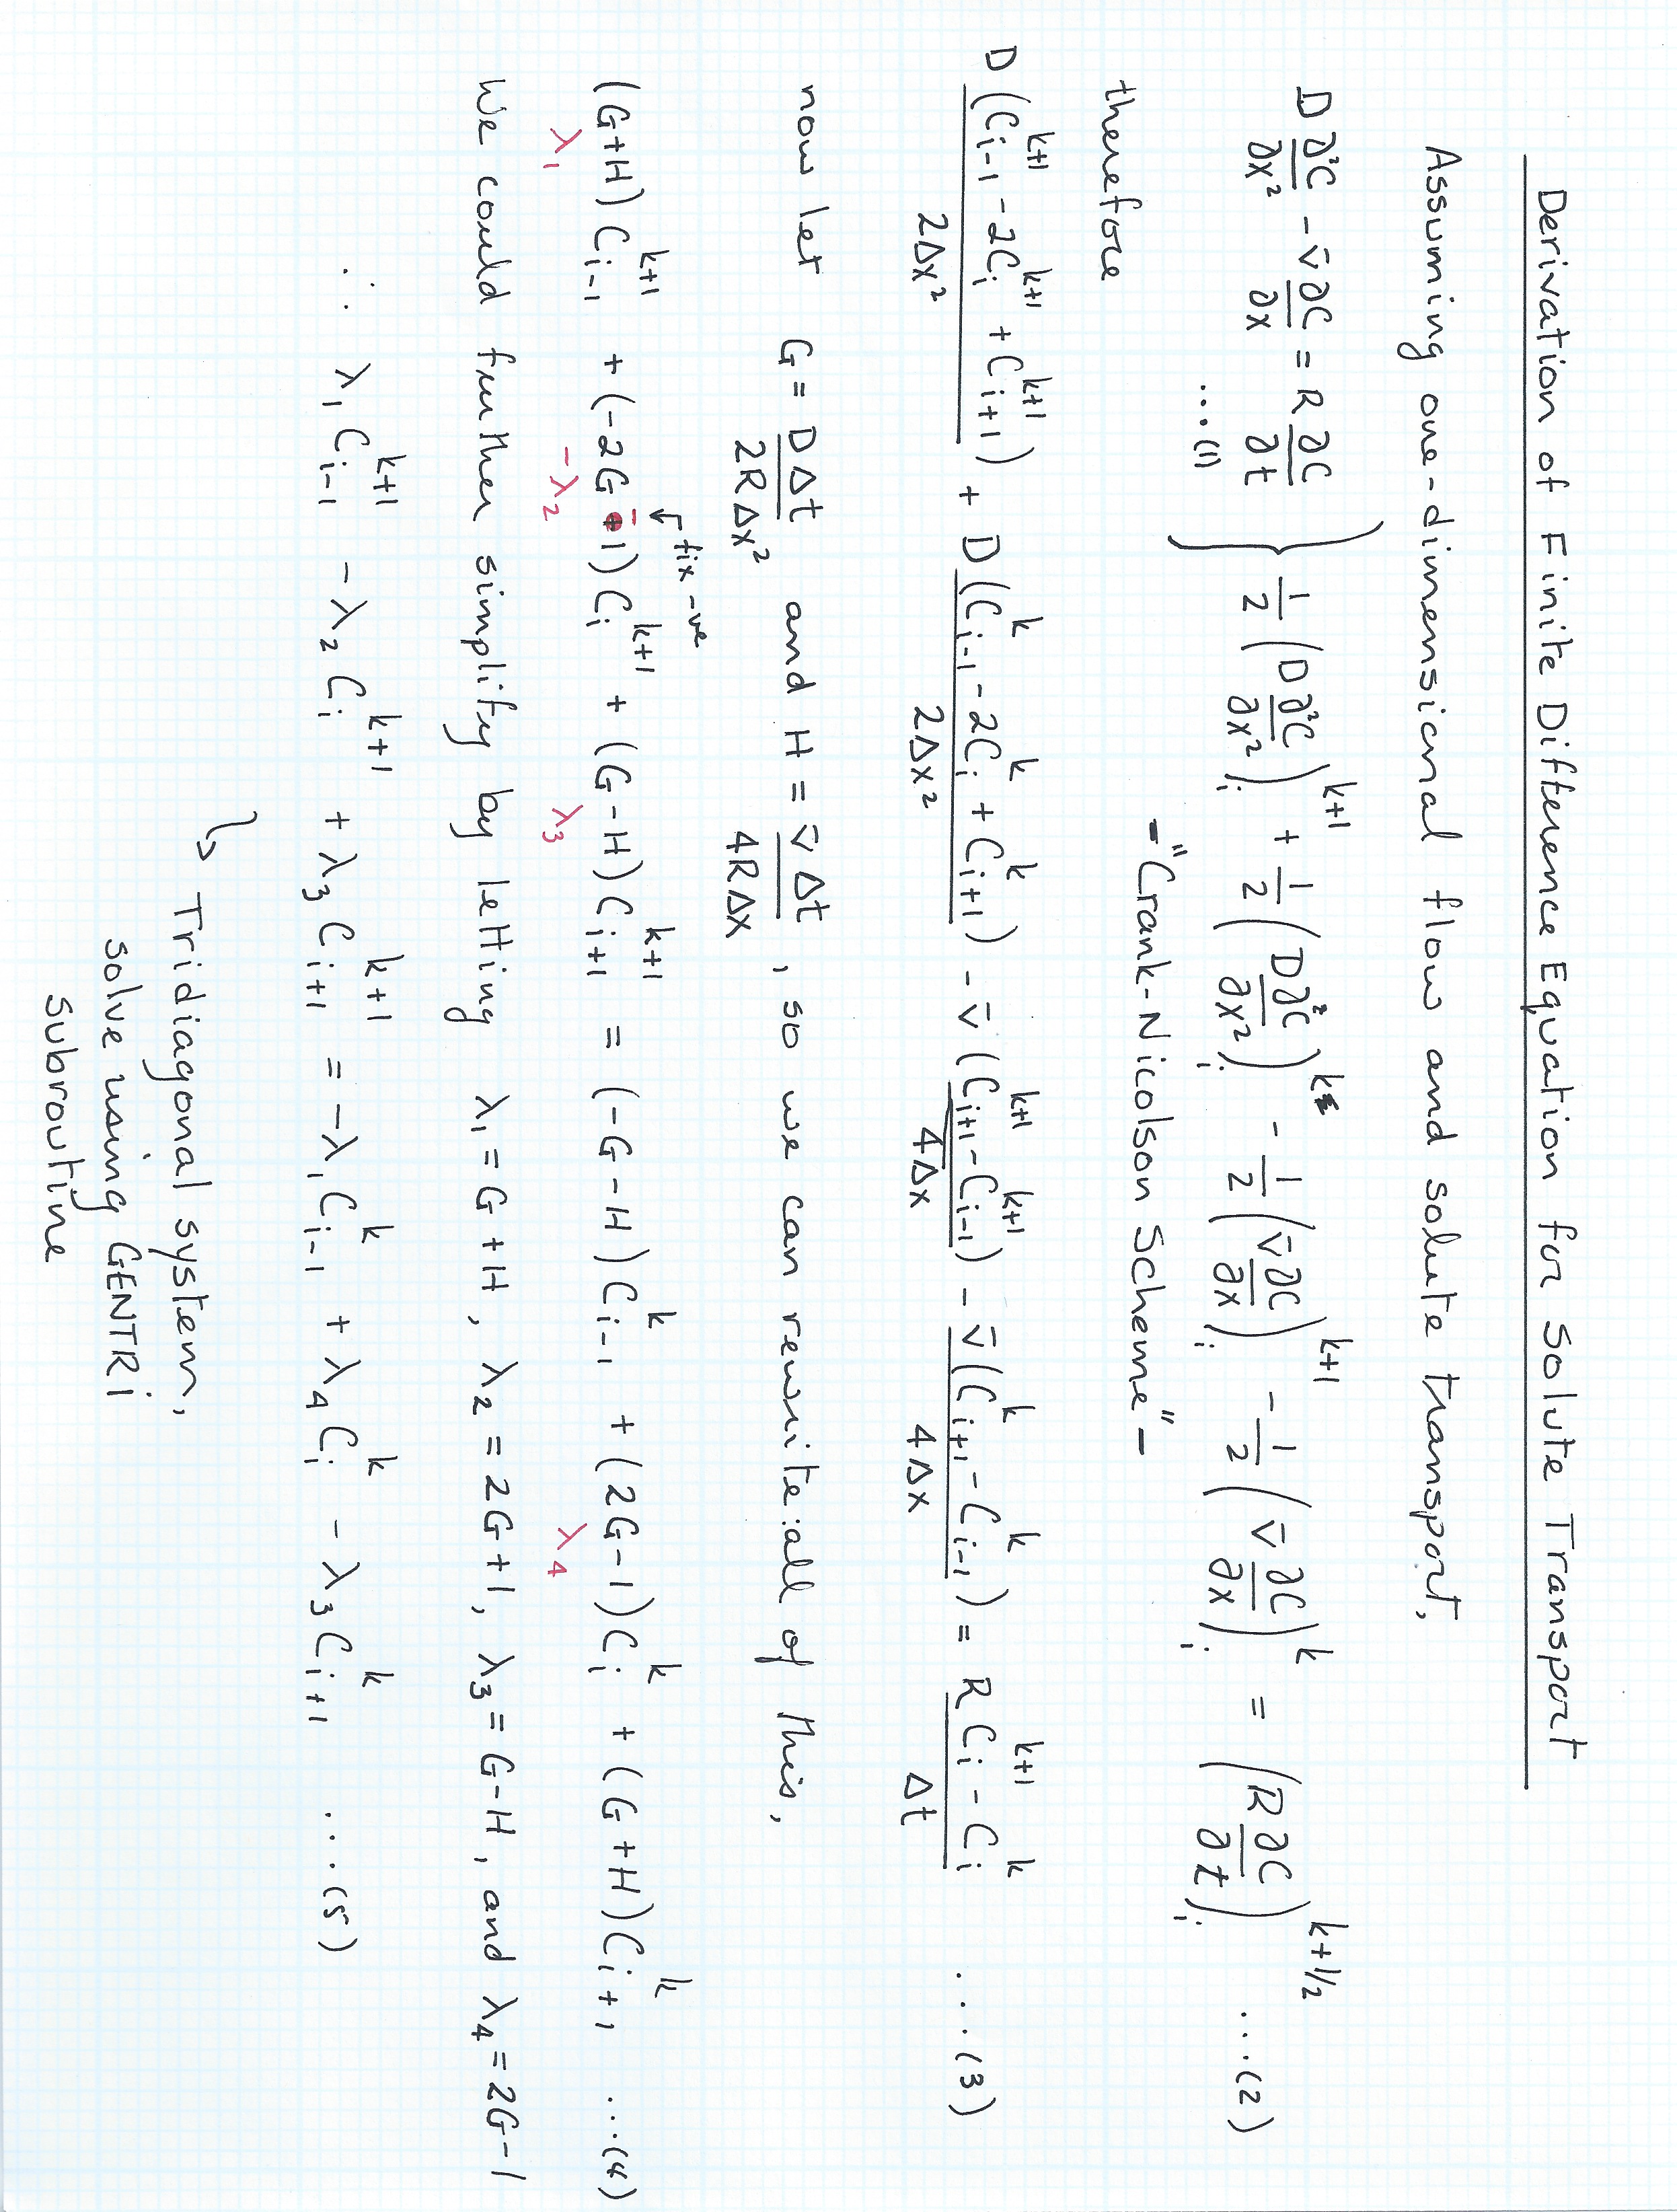 Derivation of Finite Difference Equation for Solute Transport
Assuming one-dimensional flow and solute transport,
D ∂²C/∂x² - v̄ ∂C/∂x = R ∂C/∂t ...(1) } 1/2 (D ∂²C/∂x²)ᵢ^(k+1) + 1/2 (D ∂²C/∂x²)ᵢ^k - 1/2 (v̄ ∂C/∂x)ᵢ^(k+1) - 1/2 (v̄ ∂C/∂x)ᵢ^k = (R ∂C/∂t)ᵢ^(k+1/2) ...(2)
-"Crank-Nicolson Scheme"-
therefore
D (C_{i-1}^{k+1} - 2C_i^{k+1} + C_{i+1}^{k+1}) / 2Δx² + D (C_{i-1}^k - 2C_i^k + C_{i+1}^k) / 2Δx² - v̄ (C_{i+1}^{k+1} - C_{i-1}^{k+1}) / 4Δx - v̄ (C_{i+1}^k - C_{i-1}^k) / 4Δx = R C_i^{k+1} - C_i^k / Δt ...(3)
now let G = DΔt / 2RΔx² and H = v̄Δt / 4RΔx , so we can rewrite:all of this,
fix -ve
(G+H) C_{i-1}^{k+1} + (-2G - 1) C_i^{k+1} + (G-H) C_{i+1}^{k+1} = (-G-H) C_{i-1}^k + (2G-1) C_i^k + (G+H) C_{i+1}^k ...(4)
λ₁ -λ₂ λ₃ λ₄
We could further simplify by letting λ₁ = G+H, λ₂ = 2G+1, λ₃ = G-H, and λ₄ = 2G-1
∴ λ₁ C_{i-1}^{k+1} - λ₂ C_i^{k+1} + λ₃ C_{i+1}^{k+1} = -λ₁ C_{i-1}^k + λ₄ C_i^k - λ₃ C_{i+1}^k ...(5)
Tridiagonal system,
solve using GENTRi
subroutine